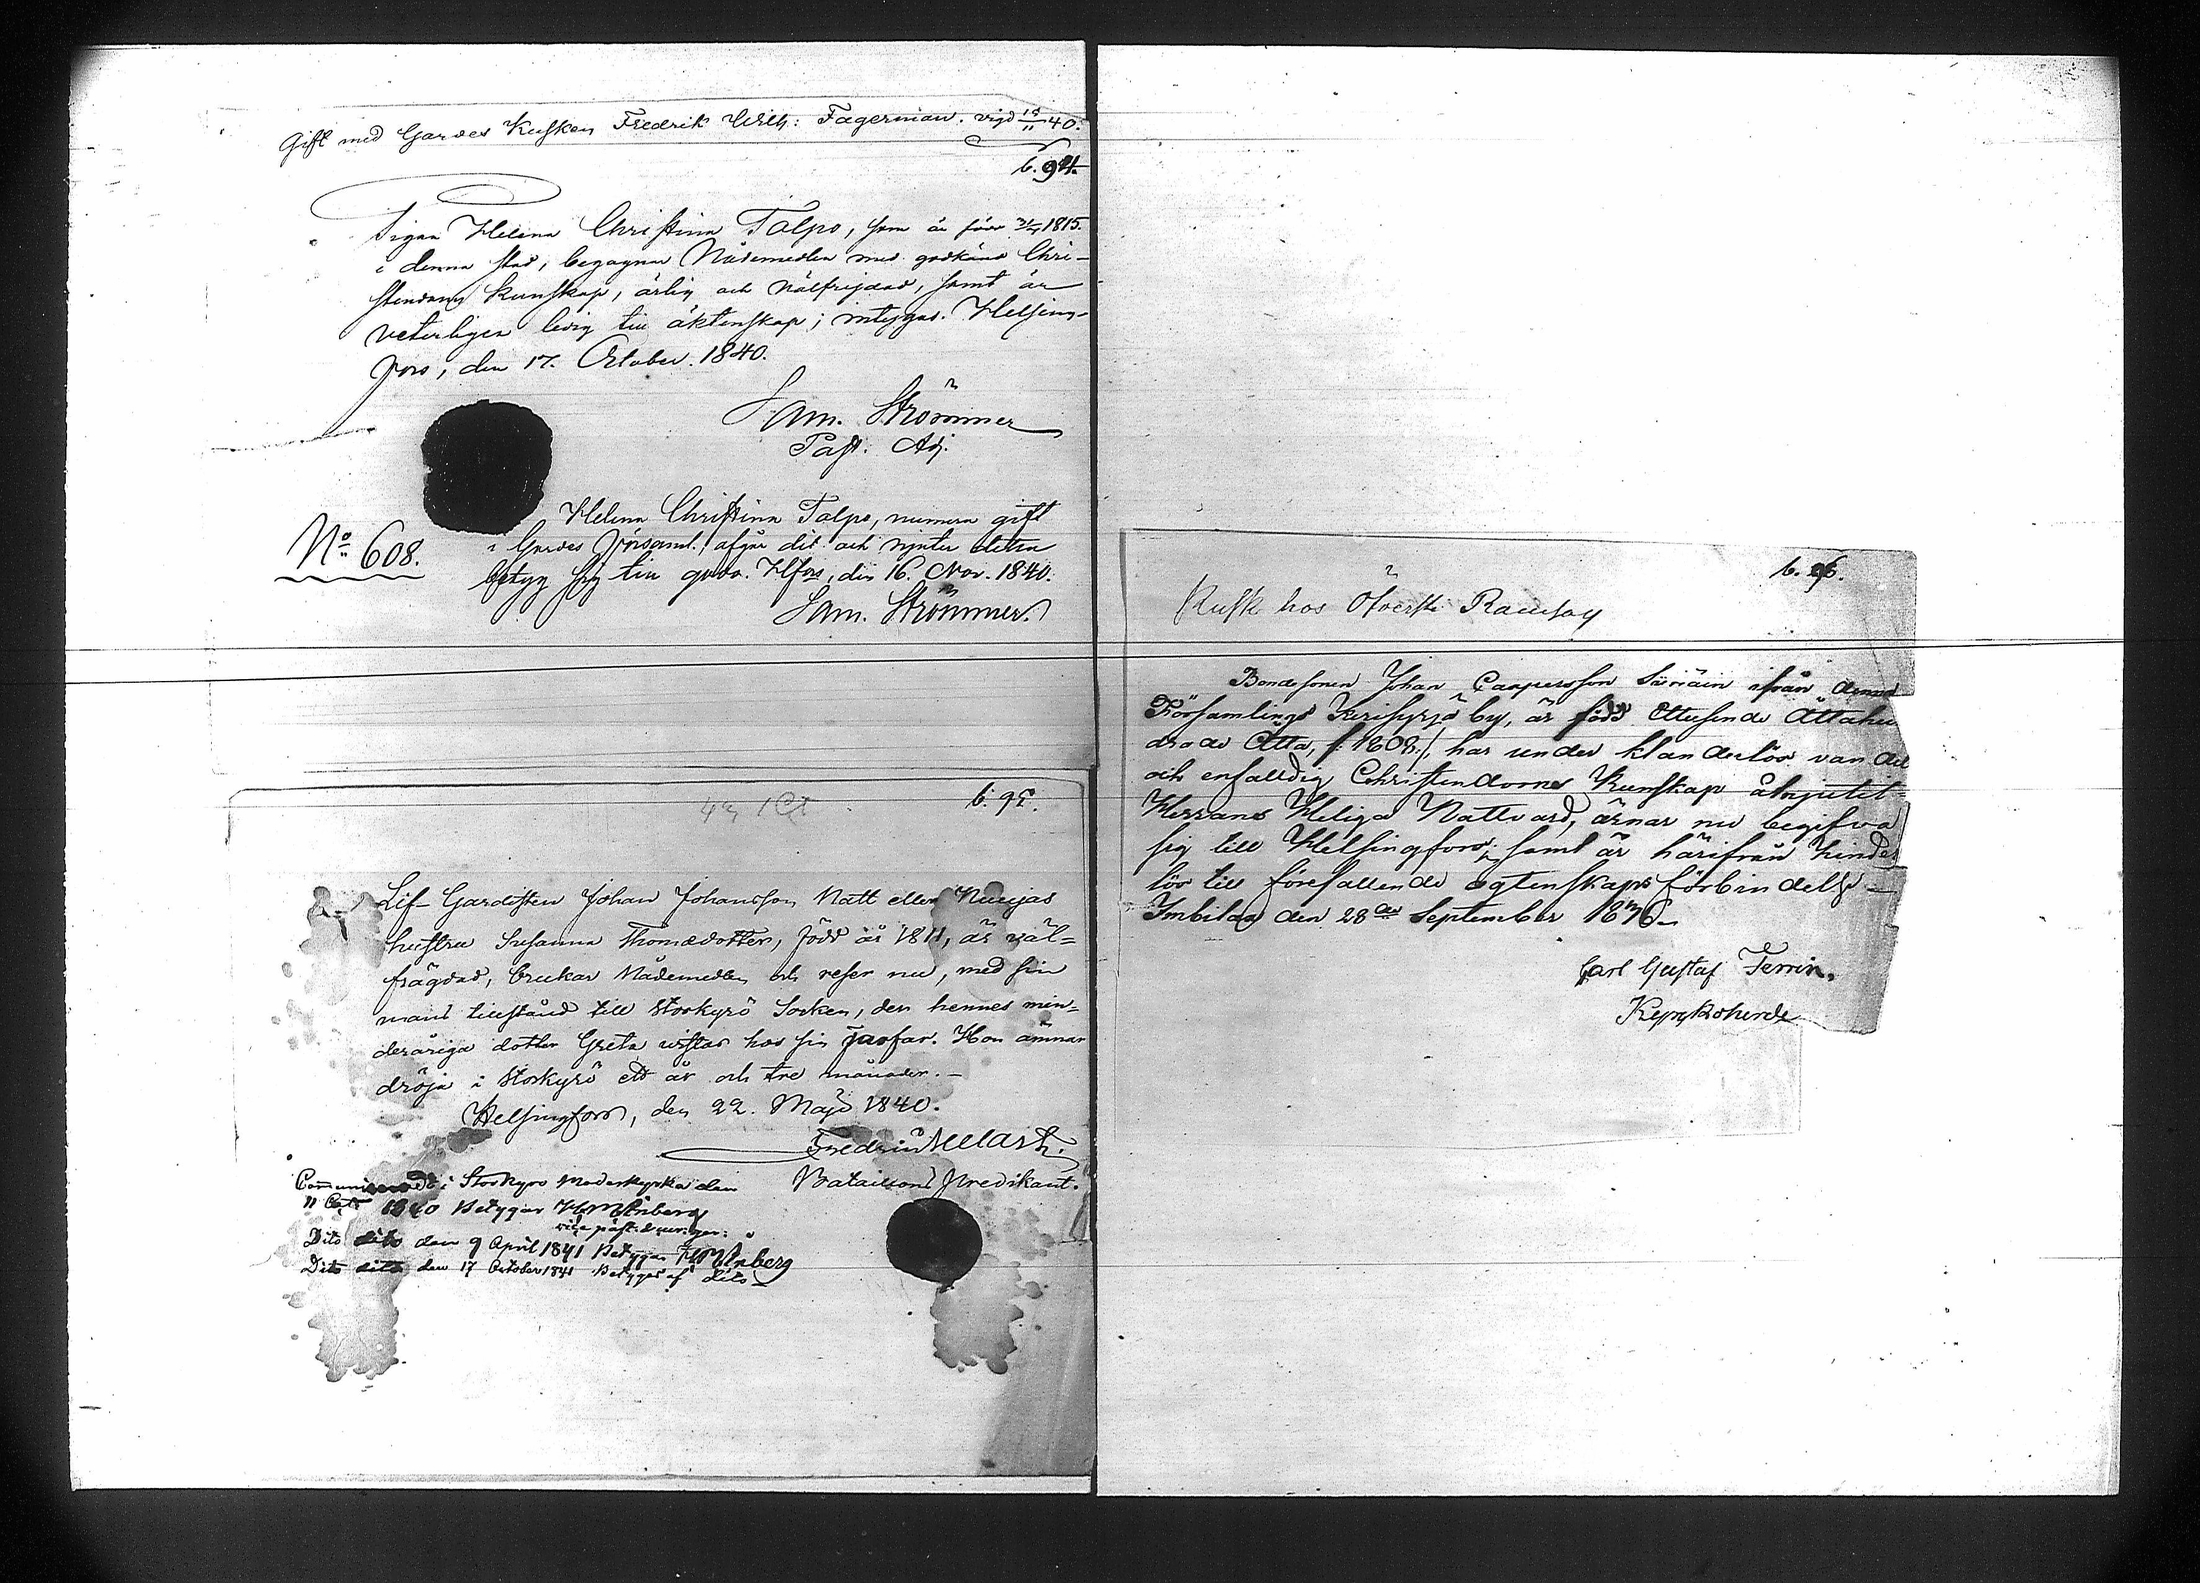 Gift med Gardes Kusken Fredrik Wilh: Fagerman. vigd 15/11 40.
b. 94.
Pigan Helena Christina Talpo, som är född 31/7 1815.
i denna stad, begagnar Nådemedlen med godkänd Chri-
stendoms kunskap, ärlig och välfrejdad, samt är
veterligen ledig till äktenskap; intygas. Helsing-
fors, den 17. October. 1840.
Sam. Strömmer
Past. Adj.
No 608.
Helena Christina Talpo, numera gift
i Gardes Församl. afgår dit och njuter detta
betyg sig till godo. Hfors, den 16. Nov. 1840.
Sam. Strömmer.
b. 95.
Lif-Gardisten Johan Johansson Natt eller
hustru Susanna Thomædotter, född år 1811, är väl=
frägdad, brukar Nådemedlen och reser nu, med sin
mans tillstånd till Storkyrö Socken, der hennes min-
deråriga dotter Greta vistas hos sin farfar. Hon ämnar
dröja i Storkyrö ett år och tre månader.-
Helsingfors, den 22. Maji 1840.
Fredrik
Bataillons Predikant.
i Storkyro Moderkyrka den
1840 Betygar
Dito dito den 9 April 1841 Betygar
Dito dito den 17 October 1841 Betygas af dito
b. 96.
Kusk hos Öfverste Ramsay
Bondesonen Johan Caspersson ifrån denna
Församlings by, är född Ettusende Åttahun
drade Åtta, /: 1808 :/, har under klanderlös vandel
och enfalldig Christendoms Kunskap åtnjutit
Herrans Heliga Nattvard, ärnar nu begifva
sig till Helsingfors; samt är härifrån hinder
lös till förefallande ägtenskaps förbindelse -
Imbilax den 28de September
Carl Gustaf
Kyrkoherde